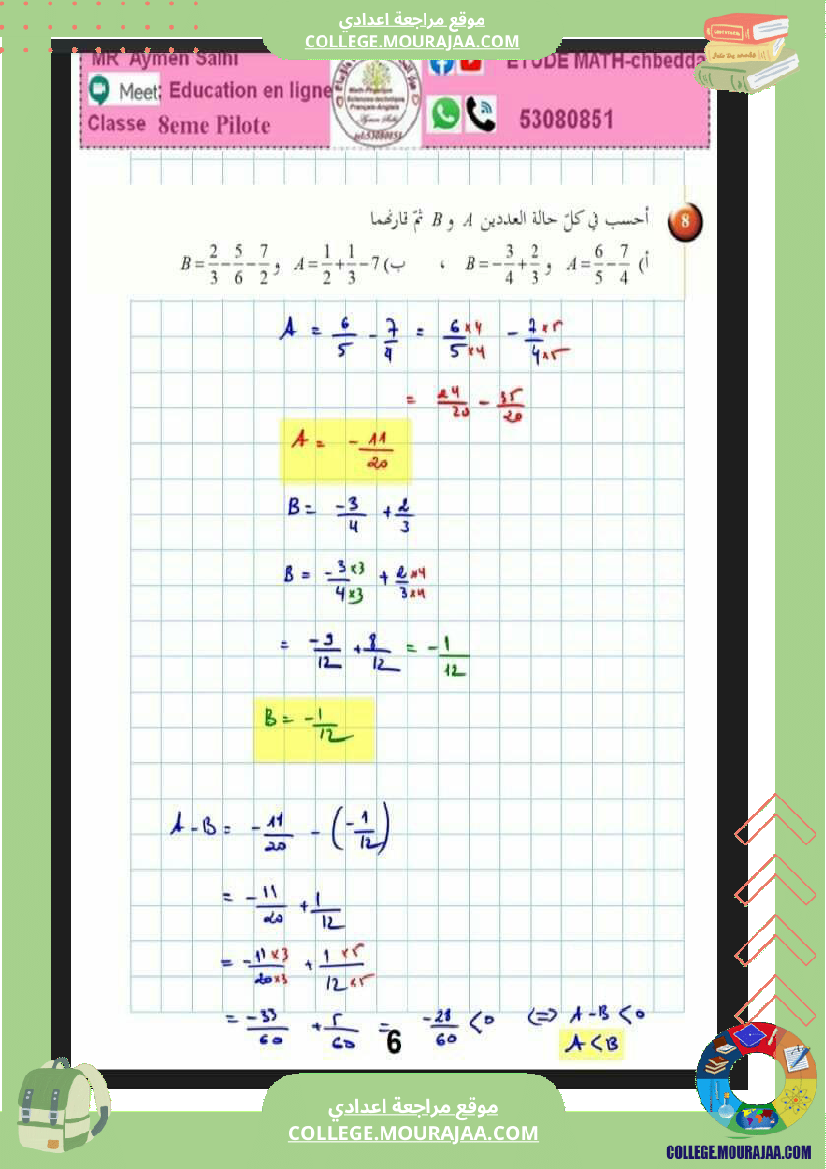 موقع مراجعة اعدادي
COLLEGE.MOURAJAA.COM
MR Aymen Salhi
ETUDE MATH-chbedda
Meet: Education en ligne
Classe 8eme Pilote
53080851
8 أحسب في كلّ حالة العددين A و B ثمّ قارنهما
أ) A = 6/5 - 7/4 و B = -3/4 + 2/3 ، ب) A = 1/2 + 1/3 - 7 و B = 2/3 - 5/6 - 7/2
A = 6/5 - 7/4 = 6×4/5×4 - 7×5/4×5
= 24/20 - 35/20
A = -11/20
B = -3/4 + 2/3
B = -3×3/4×3 + 2×4/3×4
= -9/12 + 8/12 = -1/12
B = -1/12
A - B = -11/20 - (-1/12)
= -11/20 + 1/12
= -11×3/20×3 + 1×5/12×5
= -33/60 + 5/60 = -28/60 < 0 (=) A - B < 0
A < B
6
موقع مراجعة اعدادي
COLLEGE.MOURAJAA.COM
COLLEGE.MOURAJAA.COM